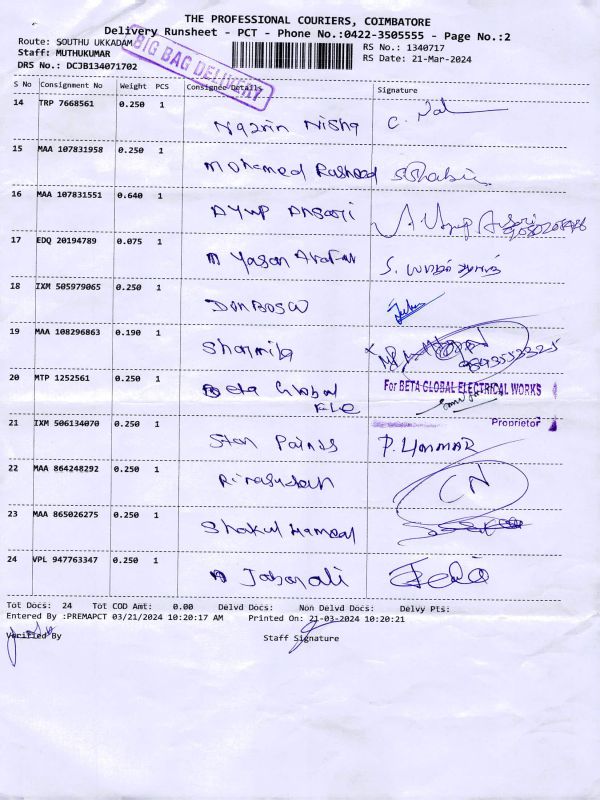 THE PROFESSIONAL COURIERS, COIMBATORE
Delivery Runsheet - PCT - Phone No.:0422-3505555 - Page No.:2
Route: SOUTHU UKKADAM
RS No.: 1340717
Staff: MUTHUKUMAR
RS Date: 21-Mar-2024
DRS No.: DCJB134071702
BIG BAG DELIVERY
S No Consignment No Weight PCS Consignee Details Signature
14 TRP 7668561 0.250 1
Nazrin Nisha
15 MAA 107831958 0.250 1
Mohamed Rasheed
16 MAA 107831551 0.640 1
Ayup Ansari
17 EDQ 20194789 0.075 1
M Yasar Arafat
18 IXM 505979065 0.250 1
Don Bosco
19 MAA 108296863 0.190 1
Sharmila
20 MTP 1252561 0.250 1
Beta Global
Ele
For BETA GLOBAL ELECTRICAL WORKS
Proprietor
21 IXM 506134070 0.250 1
Star Paints
22 MAA 864248292 0.250 1
CN
23 MAA 865026275 0.250 1
Shakul Hameed
24 VPL 947763347 0.250 1
Jabarali
Tot Docs: 24 Tot COD Amt: 0.00 Delvd Docs: Non Delvd Docs: Delvy Pts:
Entered By :PREMAPCT 03/21/2024 10:20:17 AM Printed On: 21-03-2024 10:20:21
Verified By Staff Signature